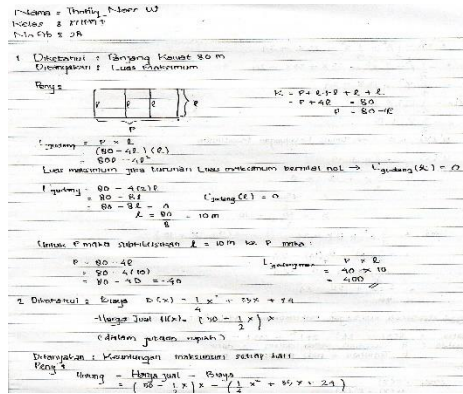 Nama : Thafiq Noer W
Kelas :
No Ab : 28
1 Diketahui : Panjang Kawat 80 m
Ditanyakan : Luas Maksimum
Peny :
K = P + l + l + l + l
= P + 4l = 80
P = 80 - 4l
l l l } l
P
L gudang = P x l
= (80 - 4l) (l)
= 80l - 4l²
Luas maksimum jika turunan Luas maksimum bernilai nol → L'gudang (l) = 0
L'gudang = 80 - 4(2)l
= 80 - 8l L'gudang (l) = 0
= 80 - 8l = 0
l = 80/8 = 10 m
Untuk P maka substitusikan l = 10 m ke P maka :
P = 80 - 4l L gudang max = P x l
= 80 - 4(10) = 40 x 10
= 80 - 40 = 40 = 400
2 Diketahui : Biaya B(x) = 1/4 x² + 35x + 24
Harga Jual H(x) = (50 - 1/2 x) x
(dalam jutaan rupiah)
Ditanyakan : Keuntungan maksimum setiap hari
Peny :
Untung = Harga jual - Biaya
= (50 - 1/2 x) x - (1/4 x² + 35x + 24)